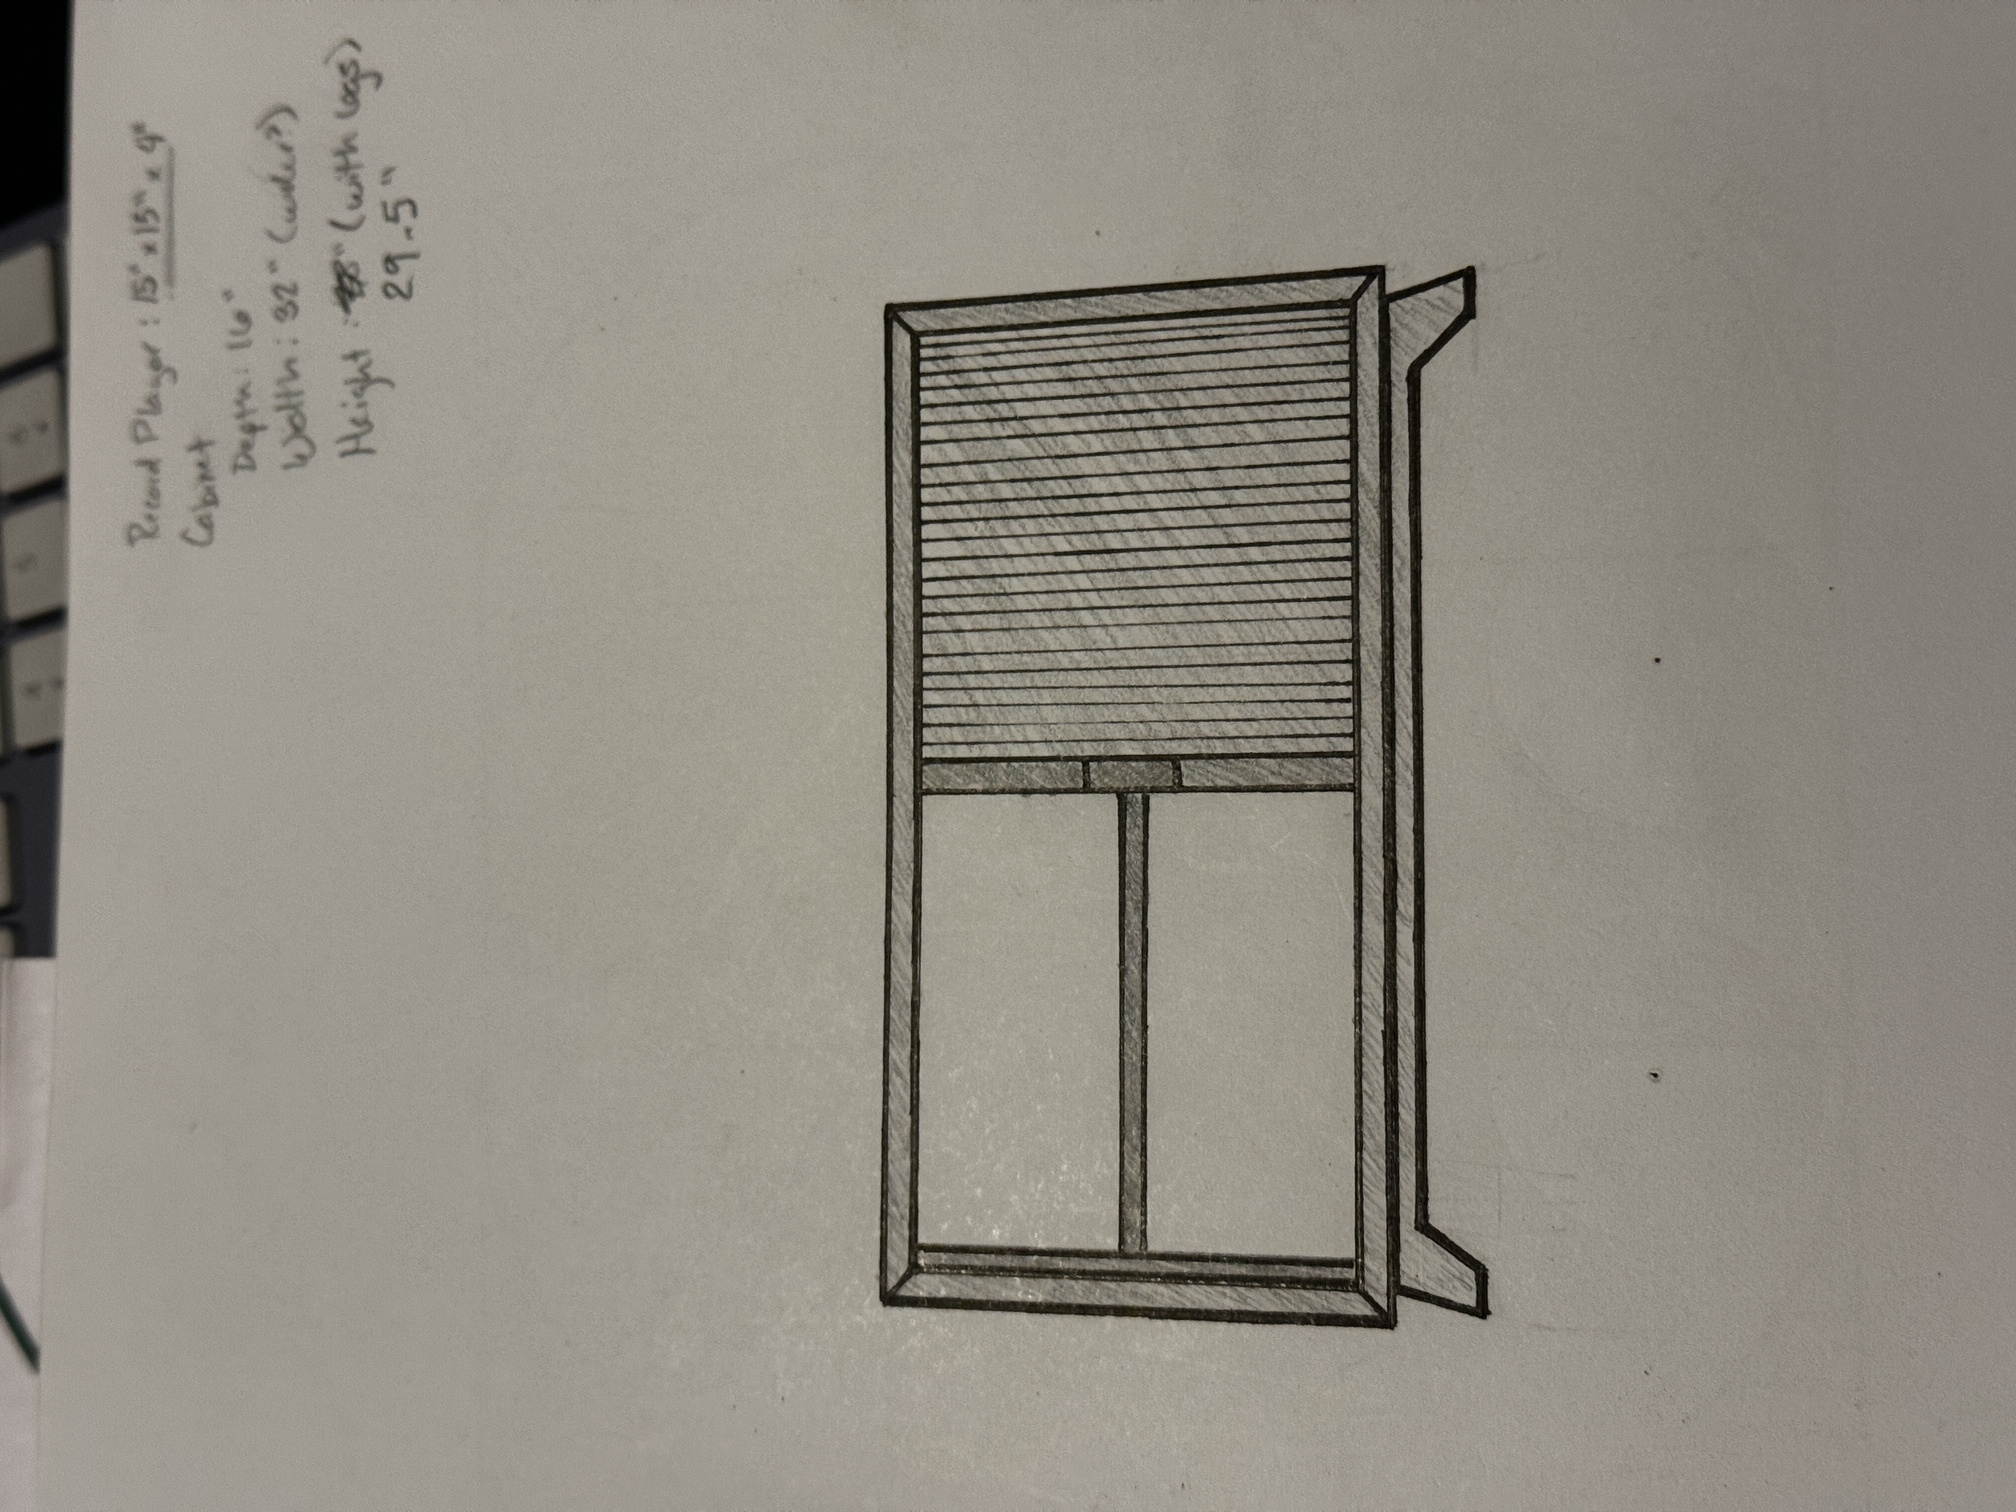 Record Player: 15" x 15" x 4"
Cabinet
Depth: 16"
Width: 32" (wider?)
Height: " (with legs)
29.5"